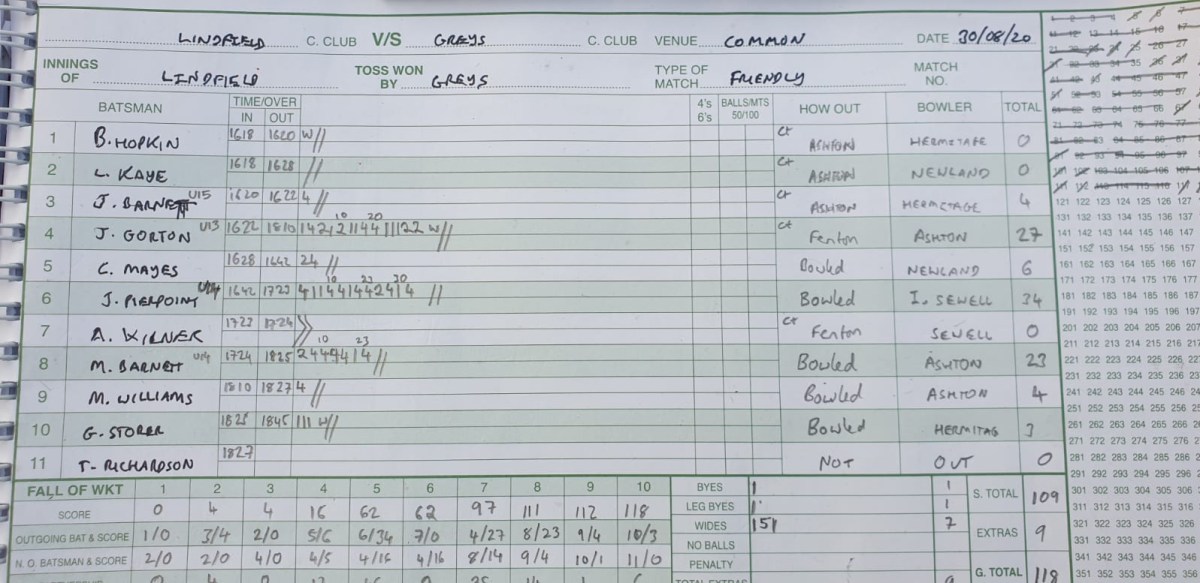 LINDFIELD C. CLUB V/S GREYS C. CLUB VENUE COMMON DATE 30/08/20
INNINGS OF LINDFIELD TOSS WON BY GREYS TYPE OF MATCH FRIENDLY MATCH NO.
BATSMAN TIME/OVER IN OUT 4's 6's BALLS/MTS 50/100 HOW OUT BOWLER TOTAL
1 B. HOPKIN 1618 1620 W// Ct ASHTON HERMITAGE 0
2 L. KAYE 1618 1628 // Ct ASHTON NEWLAND 0
3 J. BARNETT U15 1620 1622 4 // Ct ASHTON HERMITAGE 4
4 J. GORTON U13 1622 1810 Ct Fenton ASHTON 27
5 C. MAYES 1628 1642 24 // Bowled NEWLAND 6
6 J. PIERPOINT U14 1642 1723 Bowled I. SEWELL 34
7 A. KILNER 1723 1724 Ct Fenton SEWELL 0
8 M. BARNETT U14 1724 1825 Bowled ASHTON 23
9 M. WILLIAMS 1810 1827 4 // Bowled ASHTON 4
10 G. STORER 1825 1845 111 W// Bowled HERMITAG 3
11 T. RICHARDSON 1827 NOT OUT 0
FALL OF WKT 1 2 3 4 5 6 7 8 9 10
SCORE 0 4 4 16 62 62 97 111 112 118
OUTGOING BAT & SCORE 1/0 3/4 2/0 5/6 6/34 7/0 4/27 8/23 9/4 10/3
N. O. BATSMAN & SCORE 2/0 2/0 4/0 4/5 4/16 4/16 8/14 9/4 10/1 11/0
BYES 1 1
LEG BYES 1 1
WIDES 151 7
NO BALLS
PENALTY
TOTAL EXTRAS 9
S. TOTAL 109
EXTRAS 9
G. TOTAL 118
121 122 123 124 125 126 127
131 132 133 134 135 136 137
141 142 143 144 145 146 147
151 152 153 154 155 156 157
161 162 163 164 165 166 167
171 172 173 174 175 176 177
181 182 183 184 185 186 187
191 192 193 194 195 196 197
201 202 203 204 205 206 207
211 212 213 214 215 216 217
221 222 223 224 225 226 227
231 232 233 234 235 236 237
241 242 243 244 245 246 247
251 252 253 254 255 256 257
261 262 263 264 265 266
271 272 273 274 275 276
281 282 283 284 285 286
291 292 293 294 295 296
301 302 303 304 305 306
311 312 313 314 315 316
321 322 323 324 325 326
331 332 333 334 335 336
341 342 343 344 345 346
351 352 353 354 355 356